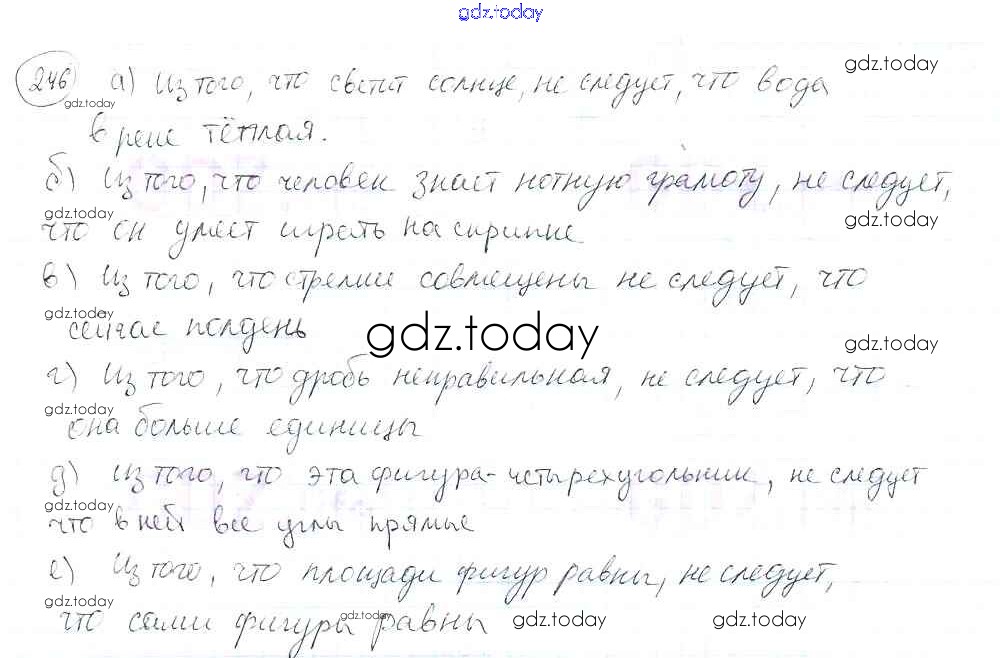 gdz.today
246 а) Из того, что светит солнце, не следует, что вода
gdz.today
gdz.today
в реке тёплая.
б) Из того, что человек знает нотную грамоту, не следует,
gdz.today
gdz.today
что он умеет играть на скрипке
в) Из того, что стрелки совмещены не следует, что
gdz.today
сейчас полдень
gdz.today
gdz.today
г) Из того, что дробь неправильная, не следует, что
gdz.today
она больше единицы
д) Из того, что эта фигура - четырехугольник, не следует
gdz.today
что в ней все углы прямые
е) Из того, что площади фигур равны, не следует,
gdz.today
что сами фигуры равны
gdz.today
gdz.today
gdz.today